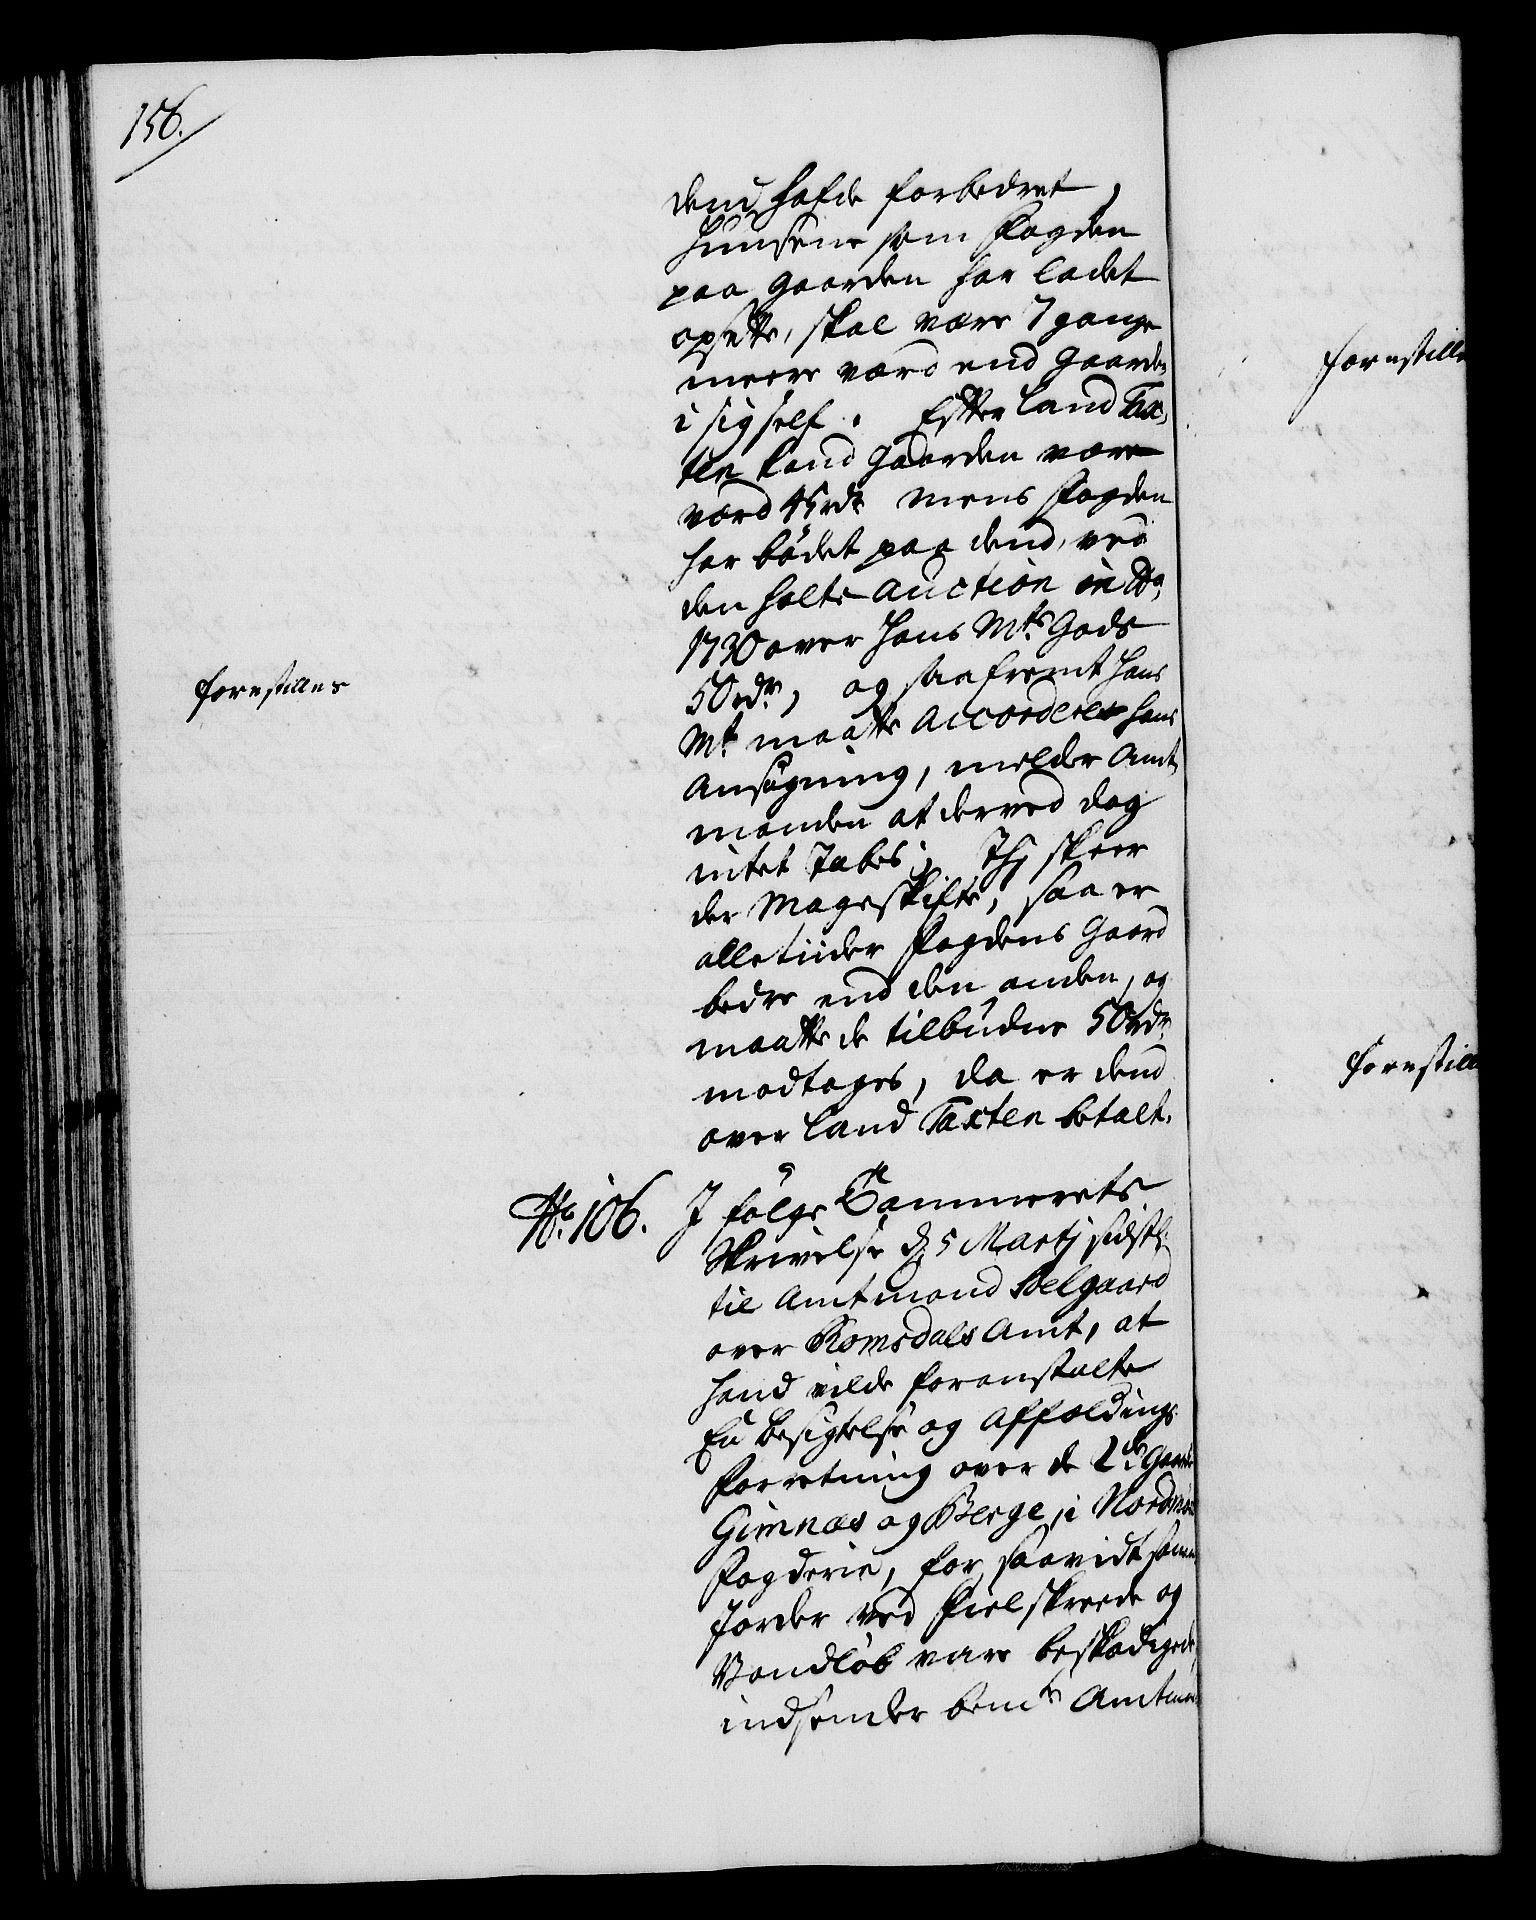 156.
dend hafde forbedret,
Huusene som Fogden
paa Gaarden har ladet
opsætte, skal være 7 gange
meere værd end Gaarden
i sig self. Efter Land Tax-
ten kand Gaarden være
værd 45 rdr mens Fogden
har bödet paa dend, ved
den holte Auction in Ao
1730 over Hans Mts Gods
50 rdr, og saafremt Hans
forestilles
Mt maatte accordere hans
Ansögning, melder Amt-
manden at derved dog
intet Tabes; Thj skeer
der Mageskifte, saa er
alletiider Fogdens Gaard
bedre end den anden, og
maatte de tilbudne 50 rdr
modtages, da er dend
over Land Taxten betalt.
No. 106. J fölge Cammerets
Skrivelse d. 5 Martj sidstl.
til Amtmand Kelgaard
over Romsdals Amt, at
hand vilde foranstalte
En Besigtelse og Affældings
Forretning over de 2de Gaarde
Gimnæs og Berge, i Nordmör
Fogderie, for saavidt samme
Jorder ved Fielskreede og
Vandløb vare beskadigede,
indsender bemte Amtman-
forestille
forestill